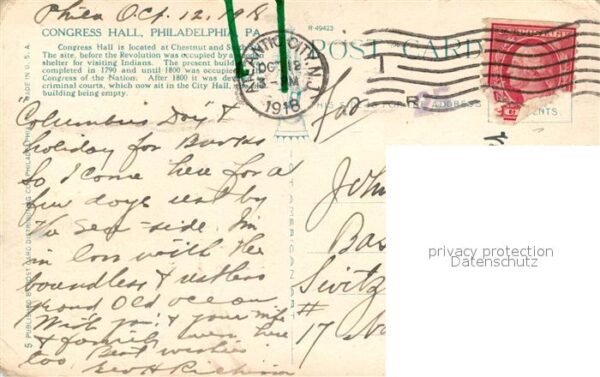 Phila Oct. 12, 1918
CONGRESS HALL, PHILADELPHIA, PA.
Congress Hall is located at Chestnut and
The site, before the Revolution was occupied by a
shelter for visiting Indians. The present
completed in 1790 and until 1800 was occupied
Congress of the Nation. After 1800 it was
criminal courts, which now sit in the City Hall,
building being empty.
MADE IN U. S. A.
5 PUBLISHED BY POST CARD DISTRIBUTING CO., PHILADELPHIA, PA.
R-49423
POST CARD
ATLANTIC CITY, N.J.
OCT 12
M
1918
THIS SPACE FOR ADDRESS
CENTS
T
Columbus Day &
holiday for Banks
So I come here for a
few days rest by
the sea-side. I'm
in love with the
boundless & restless
proud Old ocean
Wish you & your wife
& family were here
too Best wishes
Geo H
John
Bas
Switz
#
17
privacy protection
Datenschutz